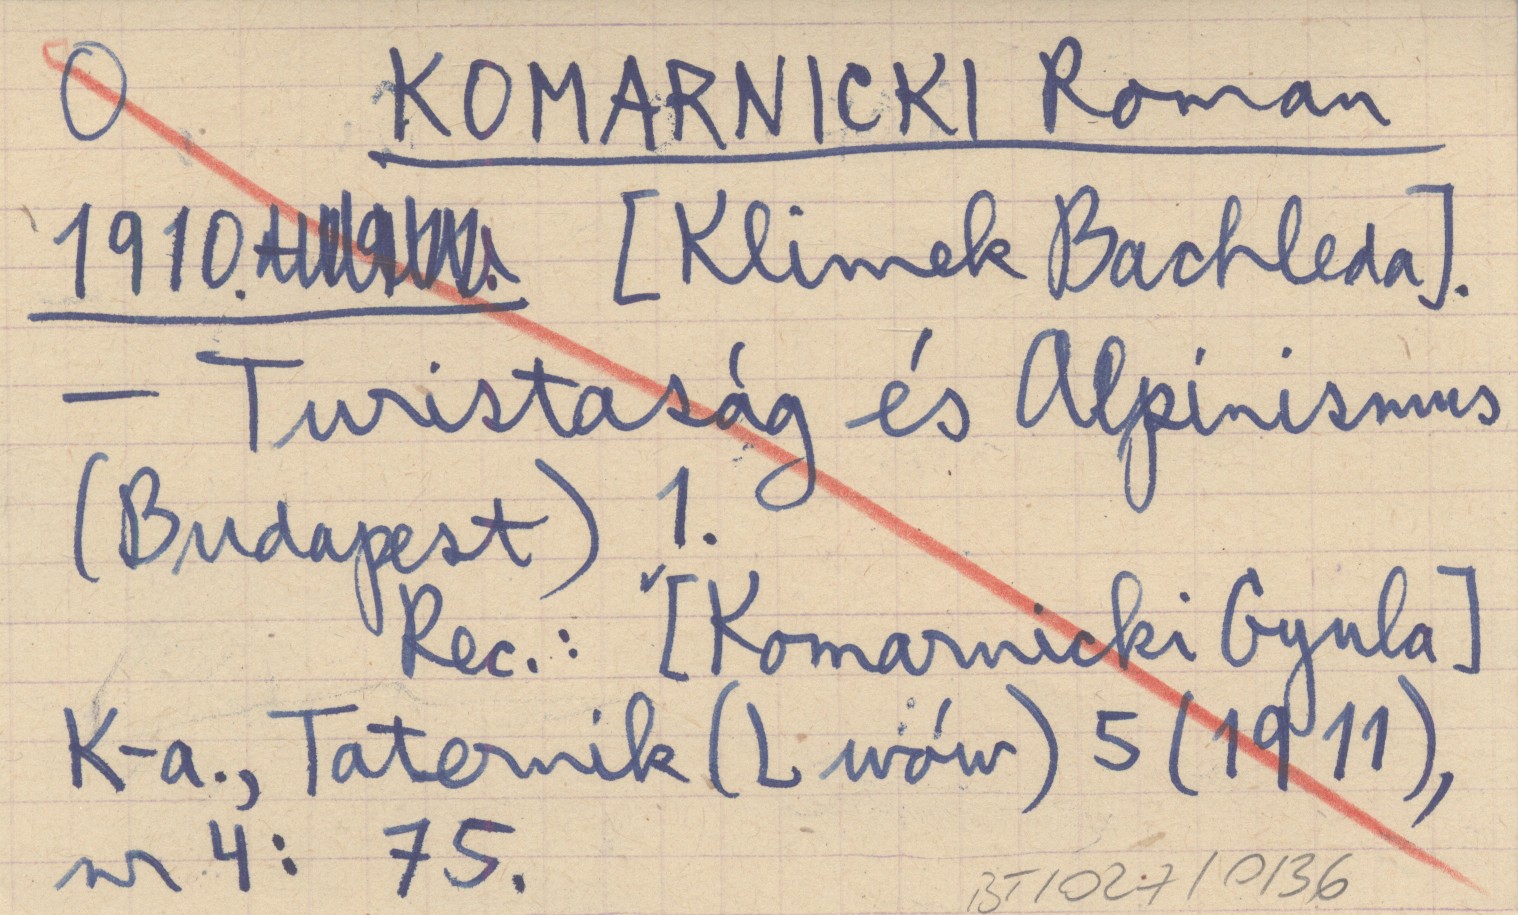 O KOMARNICKI Roman
1910. [Klimek Bachleda].
— Turistaság és Alpinismus
(Budapest) 1.
Rec.: [Komarnicki Gyula]
K-a., Taternik (Lwów) 5 (1911),
nr 4: 75.
BT/027/0136